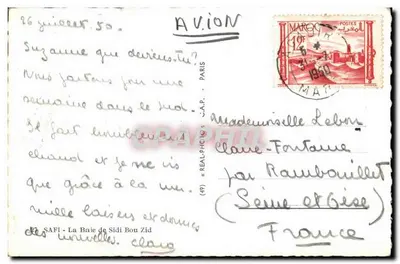 26 juillet 50.
Suzanne que deviens-tu?
Nous partons pour une
semaine dans le sud.
Il fait horriblement
chaud et je ne vis
que grâce à la mer.
mille baisers et donnes
des nouvelles.
SAFI - La Baie de Sidi Bou Zid
(49) « REAL-PHOTO » C.A.P. - PARIS
AVION
MAROC
POSTES
Mademoiselle Lebon
Claire-Fontaine
par Rambouillet
(Seine et Oise)
France